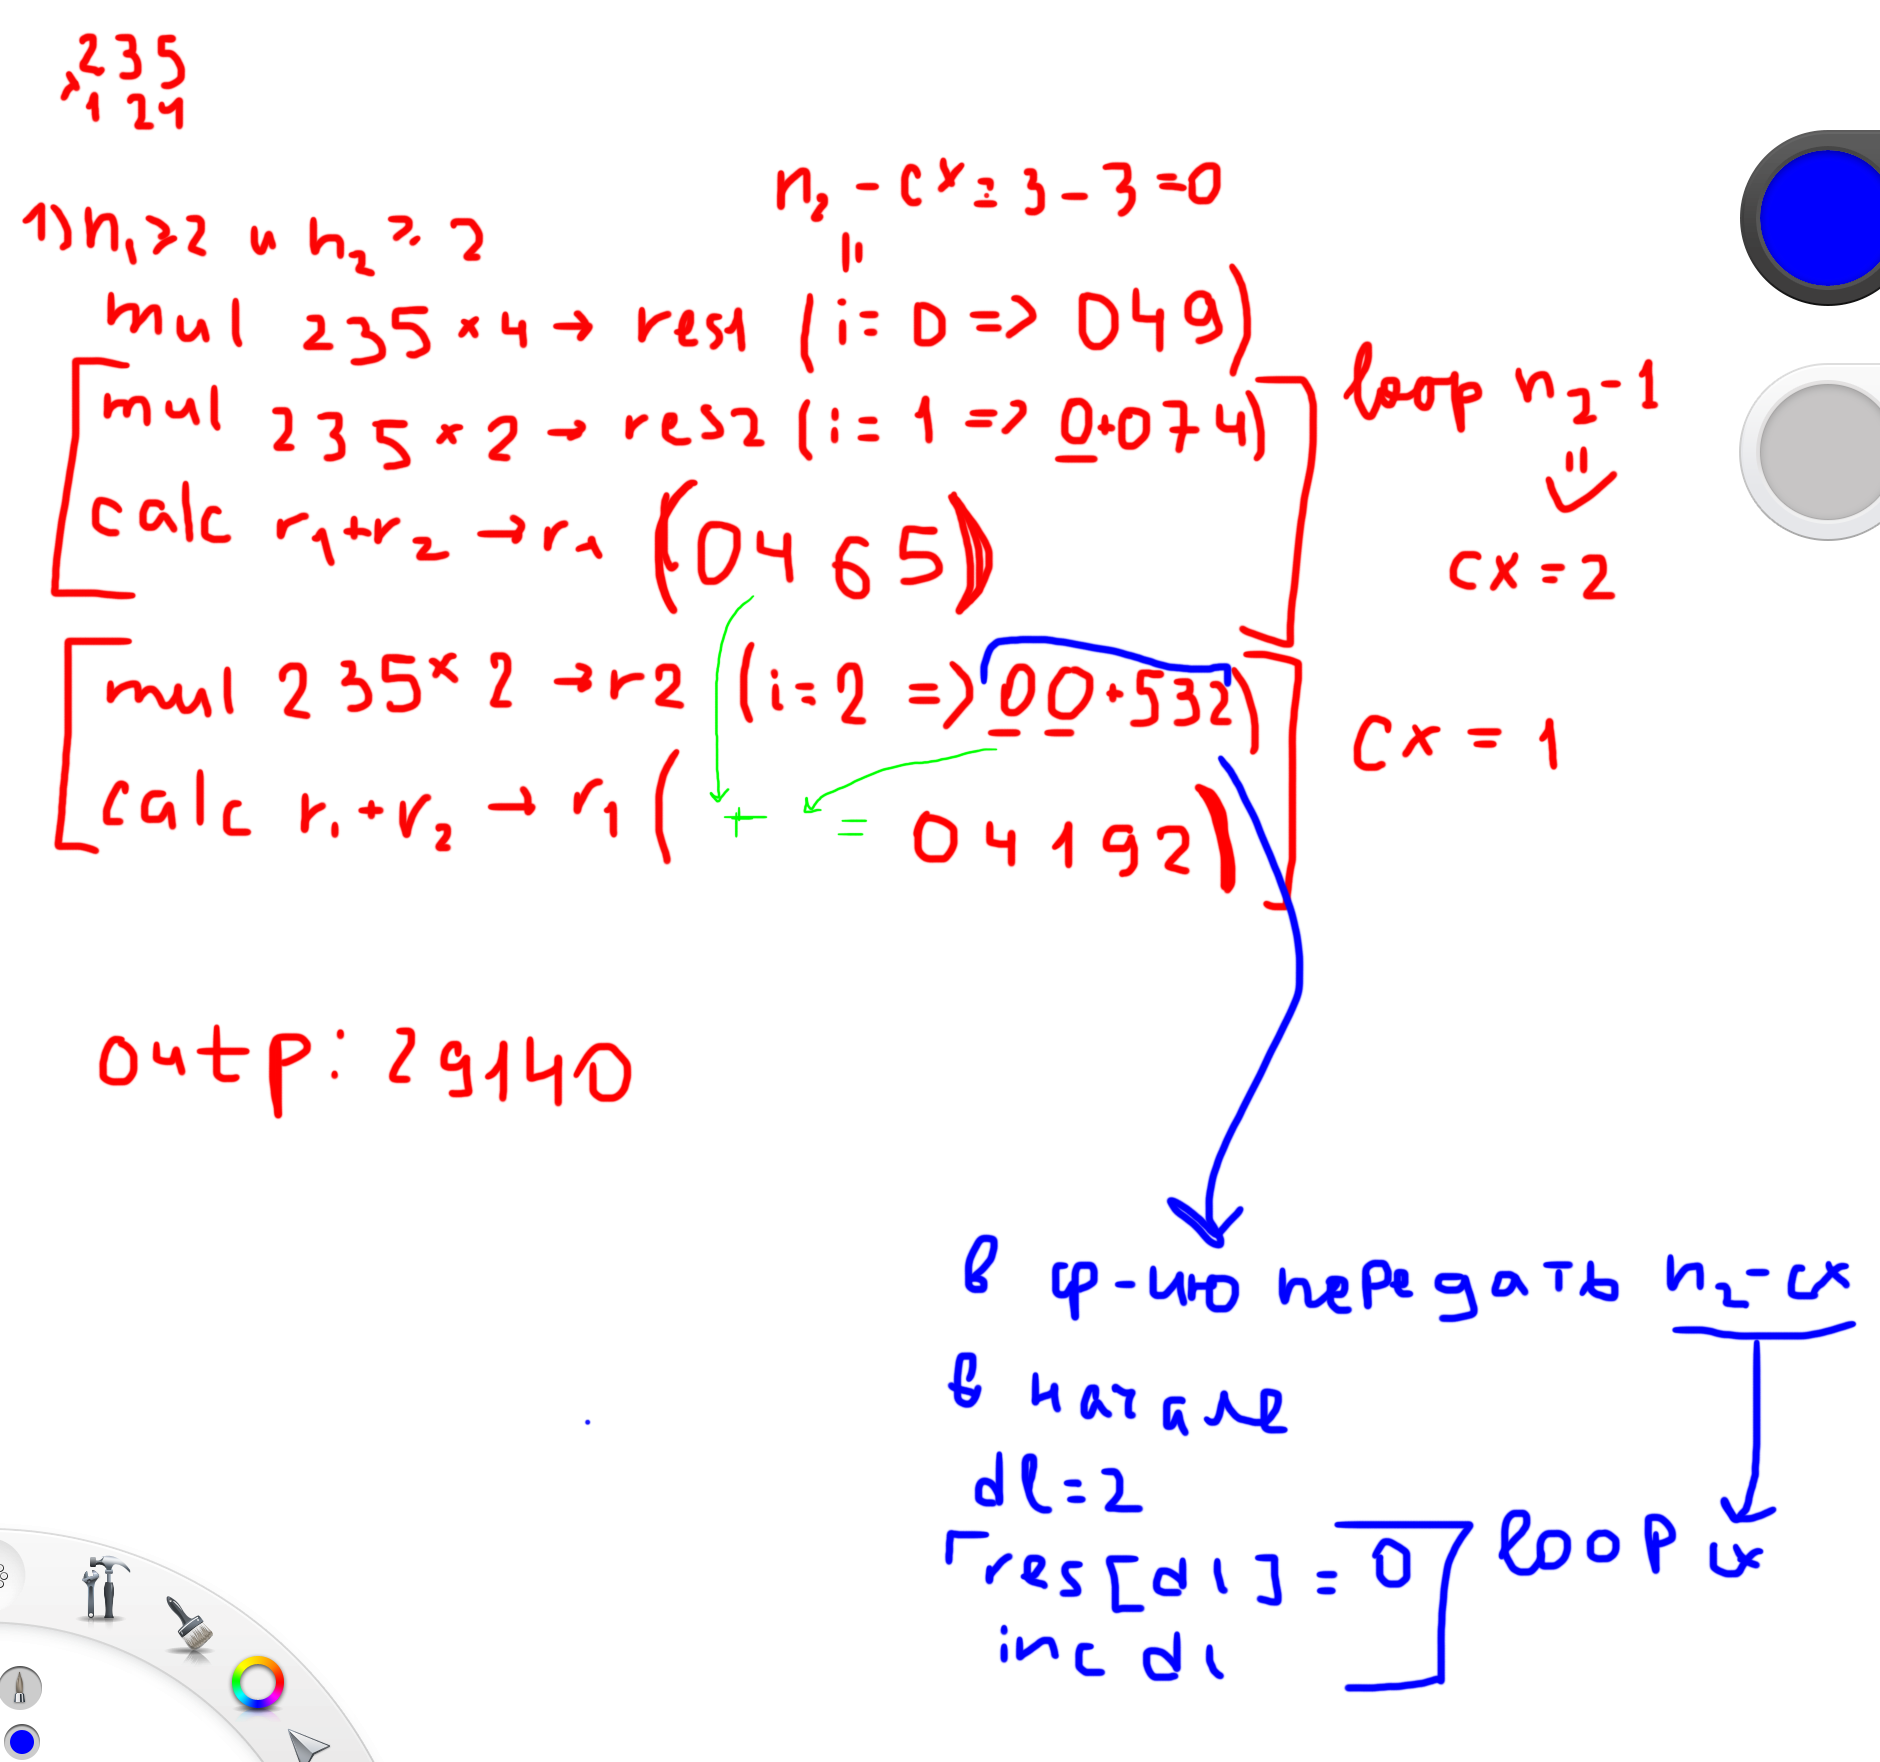 235
×124
n₂ - cx = 3 - 3 = 0
1) n₁ ≥ 2 и n₂ ≥ 2
=
mul 235 × 4 → res1 (i = 0 => 049)
mul 235 × 2 → res2 (i = 1 => 0+074)
loop n₂-1
=
calc r₁+r₂ → r₁ (0465)
cx = 2
mul 235 × 2 → r2 (i = 2 => 00+532)
cx = 1
calc r₁+r₂ → r₁ ( + = 04192)
outp: 29140
в ф-цию передать n₂-cx
в начале
dl = 2
res[dl] = 0 loop cx
inc dl